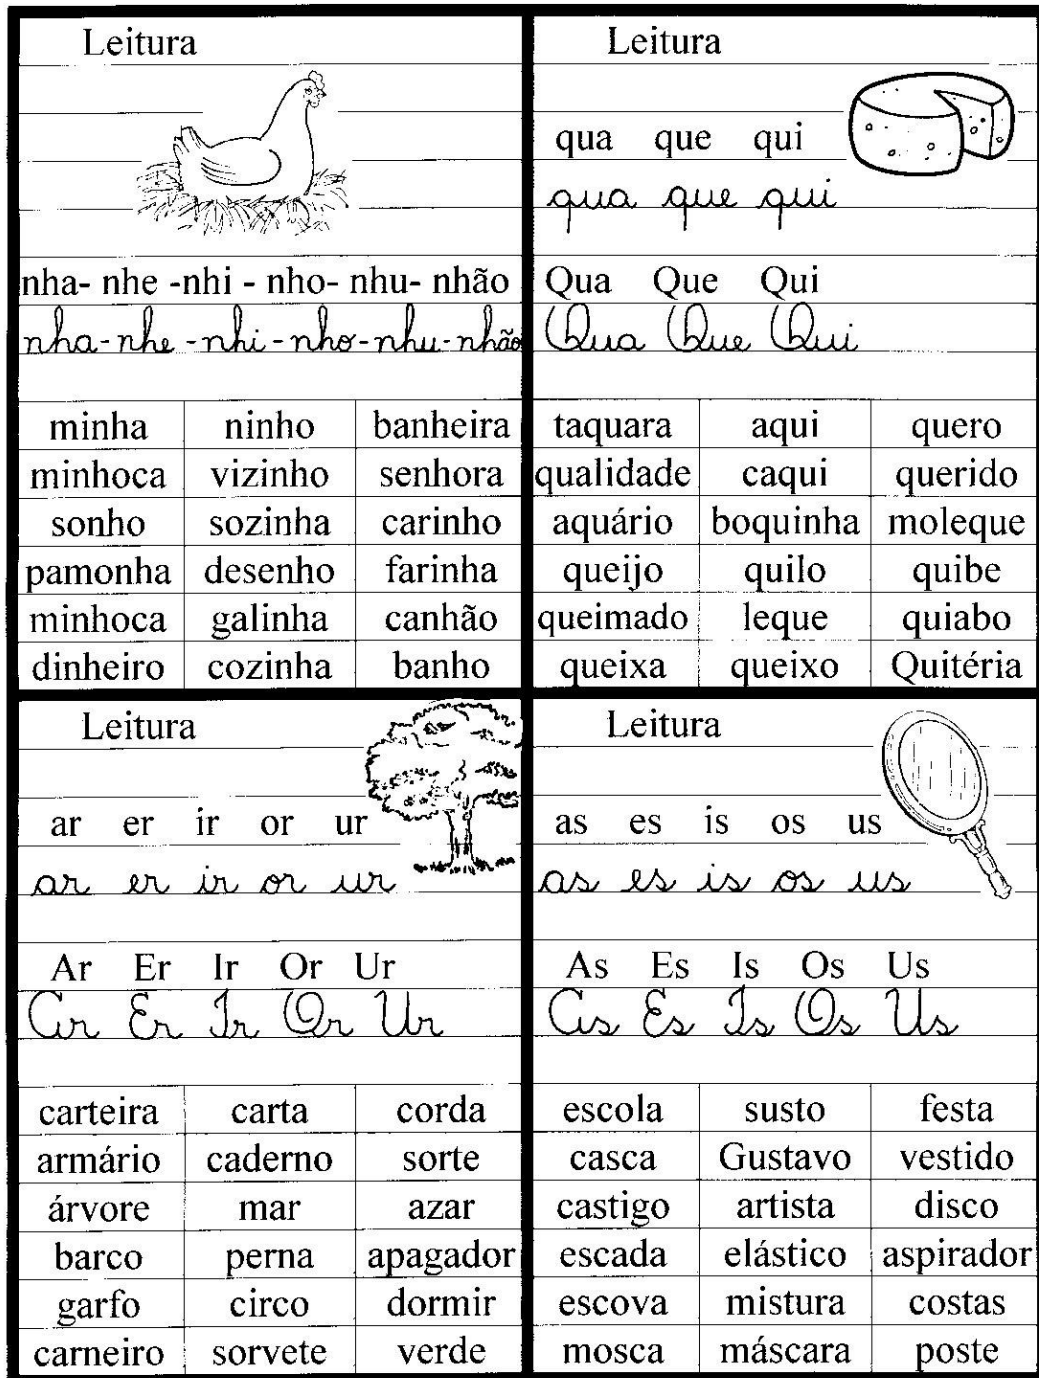 Leitura
nha- nhe -nhi - nho- nhu- nhão
nha-nhe-nhi-nho-nhu-nhão
minha ninho banheira
minhoca vizinho senhora
sonho sozinha carinho
pamonha desenho farinha
minhoca galinha canhão
dinheiro cozinha banho
Leitura
qua que qui
qua que qui
Qua Que Qui
Qua Que Qui
taquara aqui quero
qualidade caqui querido
aquário boquinha moleque
queijo quilo quibe
queimado leque quiabo
queixa queixo Quitéria
Leitura
ar er ir or ur
ar er ir or ur
Ar Er Ir Or Ur
Ar Er Ir Or Ur
carteira carta corda
armário caderno sorte
árvore mar azar
barco perna apagador
garfo circo dormir
carneiro sorvete verde
Leitura
as es is os us
as es is os us
As Es Is Os Us
As Es Is Os Us
escola susto festa
casca Gustavo vestido
castigo artista disco
escada elástico aspirador
escova mistura costas
mosca máscara poste